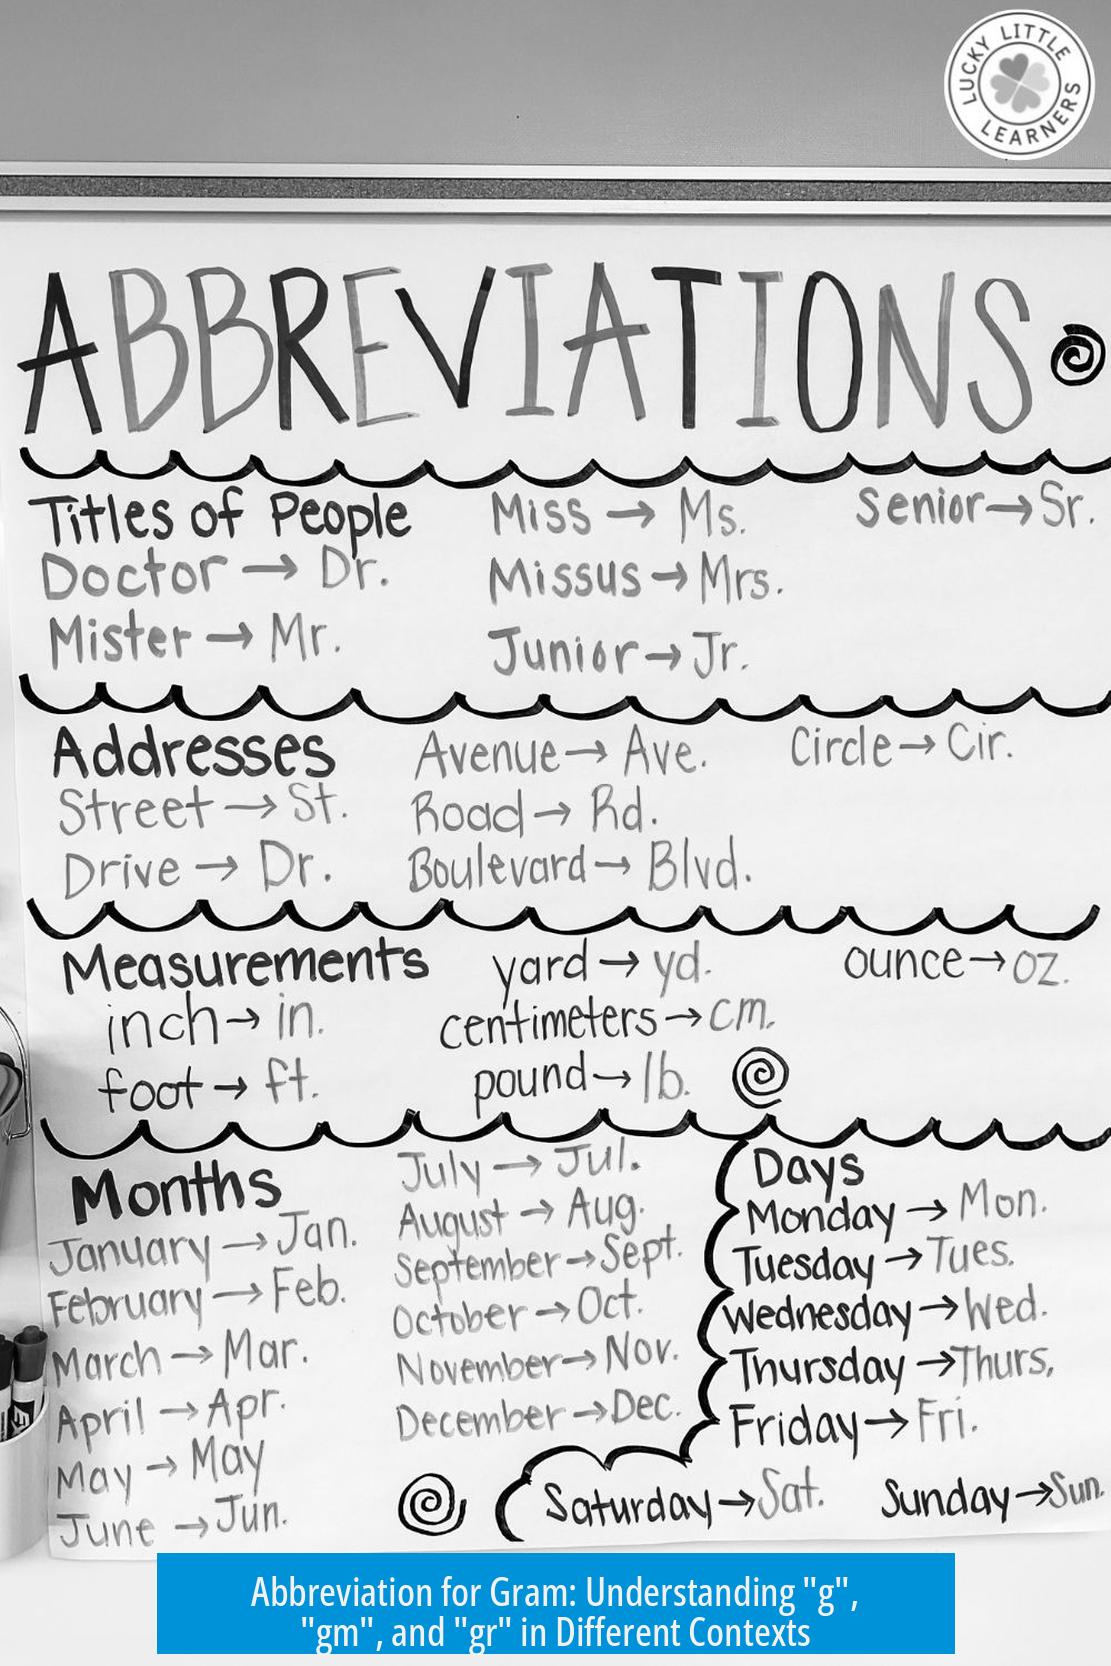 LUCKY LITTLE LEARNERS
ABBREVIATIONS
Titles of People
Doctor → Dr.
Mister → Mr.
Miss → Ms.
Missus → Mrs.
Junior → Jr.
Senior → Sr.
Addresses
Street → St.
Drive → Dr.
Avenue → Ave.
Road → Rd.
Boulevard → Blvd.
Circle → Cir.
Measurements
inch → in.
foot → ft.
yard → yd.
centimeters → cm.
pound → lb.
ounce → oz.
Months
January → Jan.
February → Feb.
March → Mar.
April → Apr.
May → May
June → Jun.
July → Jul.
August → Aug.
September → Sept.
October → Oct.
November → Nov.
December → Dec.
Days
Monday → Mon.
Tuesday → Tues.
Wednesday → Wed.
Thursday → Thurs.
Friday → Fri.
Saturday → Sat.
Sunday → Sun.
Abbreviation for Gram: Understanding "g",
"gm", and "gr" in Different Contexts